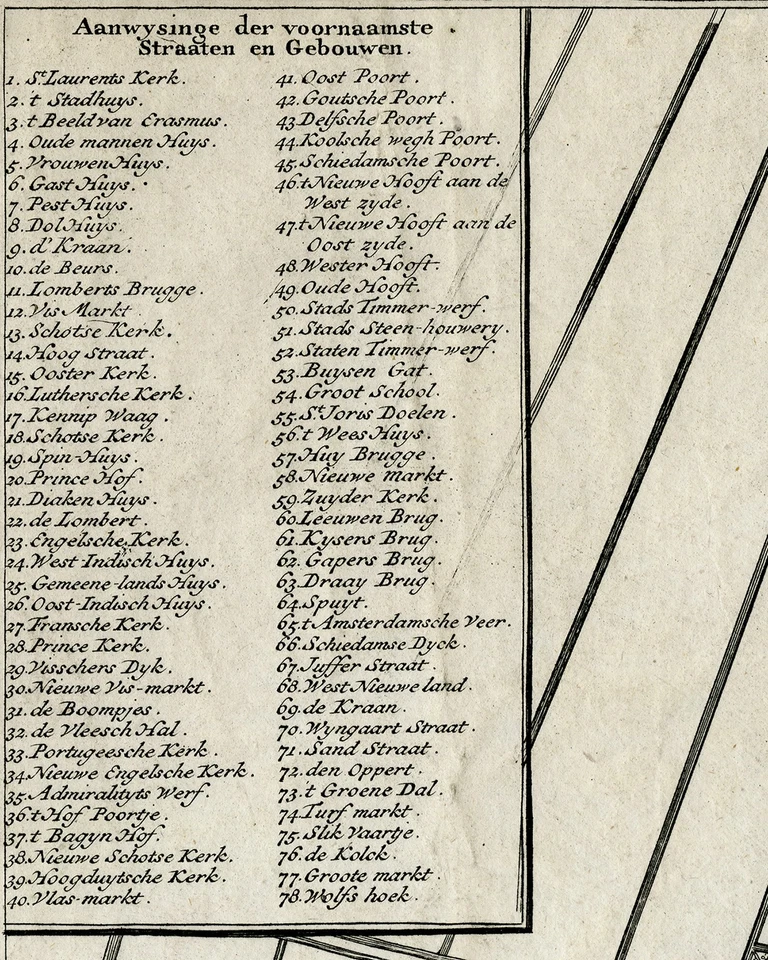 Aanwysinge der voornaamste
Straaten en Gebouwen.
1. St. Laurents Kerk.
2. t Stadhuys.
3. t Beeld van Erasmus.
4. Oude mannen Huys.
5. Vrouwen Huys.
6. Gast Huys.
7. Pest Huys.
8. Dol Huys.
9. d' Kraan.
10. de Beurs.
11. Lomberts Brugge.
12. Vis Markt
13. Schotse Kerk.
14. Hoog straat.
15. Ooster Kerk.
16. Luthersche Kerk.
17. Kennip Waag.
18. Schotse Kerk.
19. Spin-Huys.
20. Prince Hof.
21. Diaken Huys.
22. de Lombert.
23. Engelsche Kerk.
24. West-Indisch Huys.
25. Gemeene-lands Huys.
26. Oost-Indisch Huys.
27. Fransche Kerk.
28. Prince Kerk.
29. Visschers Dyk.
30. Nieuwe Vis-markt.
31. de Boompjes.
32. de Vleesch Hal.
33. Portugeesche Kerk.
34. Nieuwe Engelsche Kerk.
35. Admiralityts Werf.
36. t Hof Poortje.
37. t Bagyn Hof.
38. Nieuwe Schotse Kerk.
39. Hoogduytsche Kerk.
40. Vlas-markt.
41. Oost Poort.
42. Goutsche Poort.
43. Delfsche Poort.
44. Koolsche wegh Poort.
45. Schiedamsche Poort.
46. t Nieuwe Hooft aan de
West zyde.
47. t Nieuwe Hooft aan de
Oost zyde.
48. Wester Hooft.
49. Oude Hooft.
50. Stads Timmer-werf.
51. Stads Steen-houwery.
52. Staten Timmer-werf.
53. Buysen Gat.
54. Groot School.
55. St. Joris Doelen.
56. t Wees Huys.
57. Huy Brugge.
58. Nieuwe markt.
59. Zuyder Kerk.
60. Leeuwen Brug.
61. Kysers Brug.
62. Gapers Brug.
63. Draay Brug.
64. Spuyt.
65. t Amsterdamsche Veer.
66. Schiedamse Dyck.
67. Juffer straat.
68. West Nieuwe land.
69. de Kraan.
70. Wyngaart Straat.
71. Sand Straat.
72. den Oppert.
73. t Groene Dal.
74. Turf markt.
75. Slik Vaartje.
76. de Kolck.
77. Groote markt.
78. Wolfs hoek.